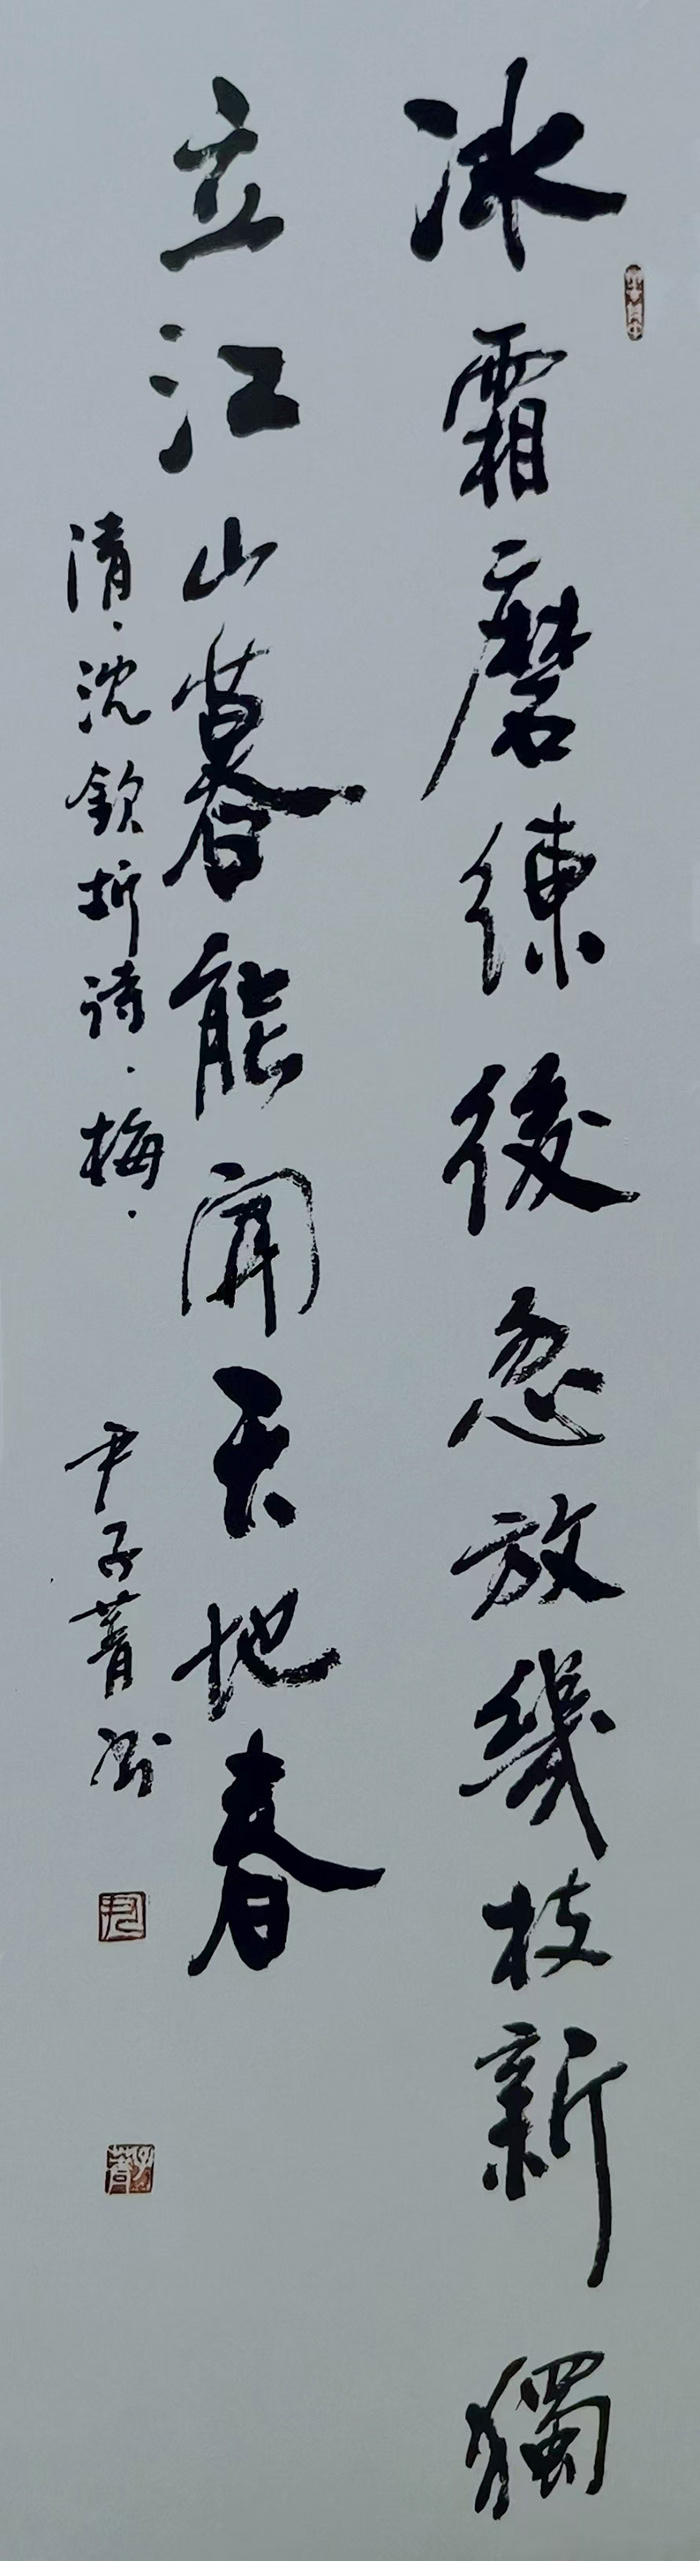 冰霜磨練後忽放幾枝新獨
立江山暮能開天地春
清、沈欽圻詩、梅、
尹子菁書
尹
子菁